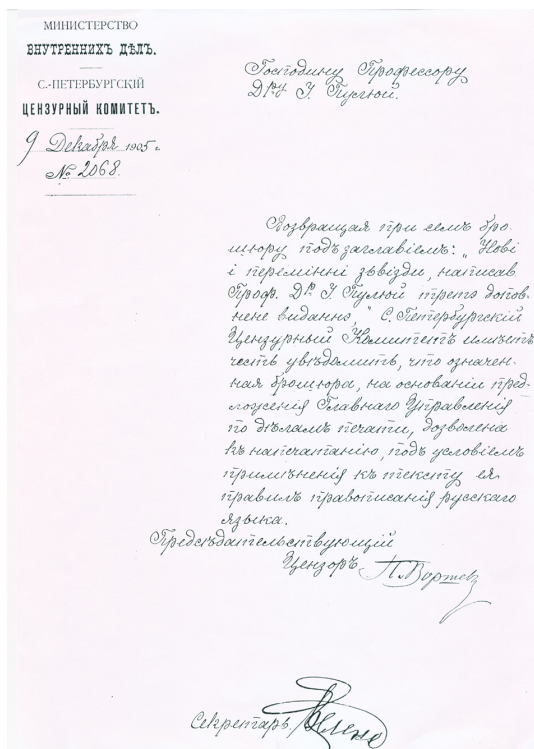 МИНИСТЕРСТВО
ВНУТРЕННИХЪ ДѢЛЪ.
С.-ПЕТЕРБУРГСКІЙ
ЦЕНЗУРНЫЙ КОМИТЕТЪ.
9 Декабря 1905 г.
№ 2068.
Господину Профессору
Дру І. Пулюй.
Возвращая при семъ бро-
шюру подъ заглавіемъ: „Нові
і перемінні зьвізди, написав
Проф. Др. І. Пулюй третє допов-
нене виданнє," С. Петербургскій
Цензурный Комитетъ имѣетъ
честь увѣдомить, что означен-
ная брошюра, на основаніи пред-
ложенія Главнаго Управленія
по дѣламъ печати, дозволена
къ напечатанію, подъ условіемъ
примѣненія къ тексту ея
правилъ правописанія русскаго
языка.
Предсѣдательствующій
Цензоръ
Секретарь